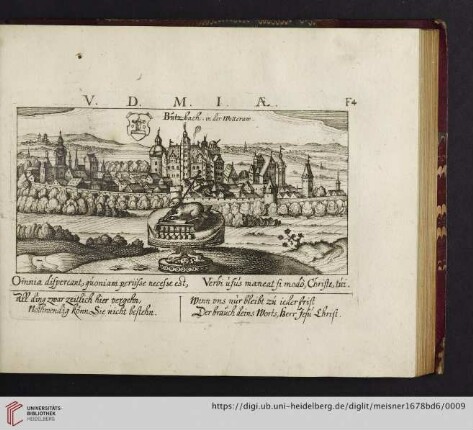 V. D. M. I. Æ. F4
Butzbach in der Wetteraw
Omnia dispereant, quoniam periisse necesse est, Verbi usus maneat si modo, Christe, tui.
All ding zwar zeitlich hier vergehn,
Nohtwendig könn Sie nicht bestehn.
Wenn vns nur bleibt zu ieder frist
Der brauch deins Worts, Herr Jesu Christ.
UNIVERSITÄTS-
BIBLIOTHEK
HEIDELBERG
https://digi.ub.uni-heidelberg.de/diglit/meisner1678bd6/0009